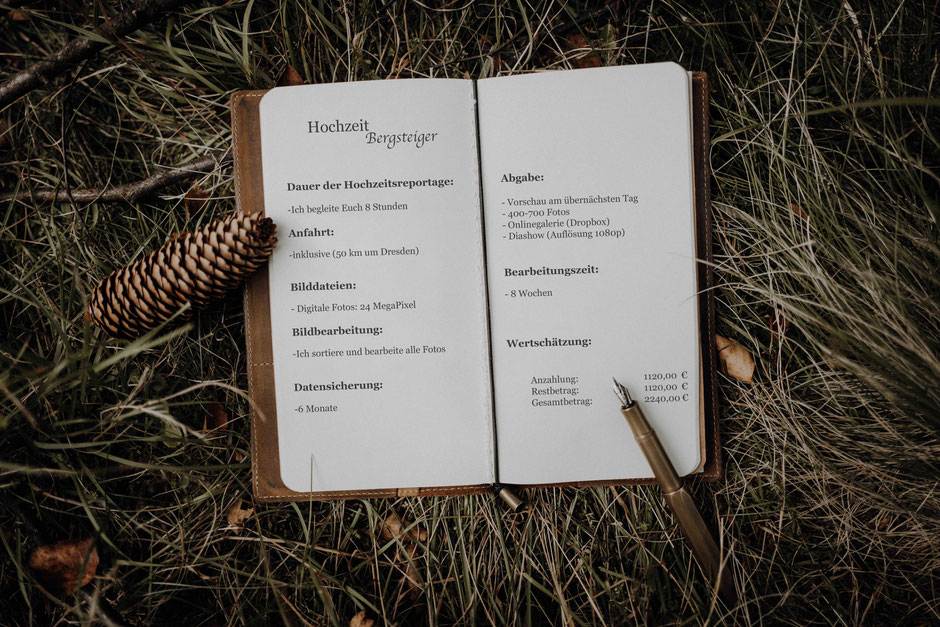 Hochzeit
Bergsteiger
Dauer der Hochzeitsreportage:
-Ich begleite Euch 8 Stunden
Anfahrt:
-inklusive (50 km um Dresden)
Bilddateien:
- Digitale Fotos: 24 MegaPixel
Bildbearbeitung:
-Ich sortiere und bearbeite alle Fotos
Datensicherung:
-6 Monate
Abgabe:
- Vorschau am übernächsten Tag
- 400-700 Fotos
- Onlinegalerie (Dropbox)
- Diashow (Auflösung 1080p)
Bearbeitungszeit:
- 8 Wochen
Wertschätzung:
Anzahlung: 1120,00 €
Restbetrag: 1120,00 €
Gesamtbetrag: 2240,00 €